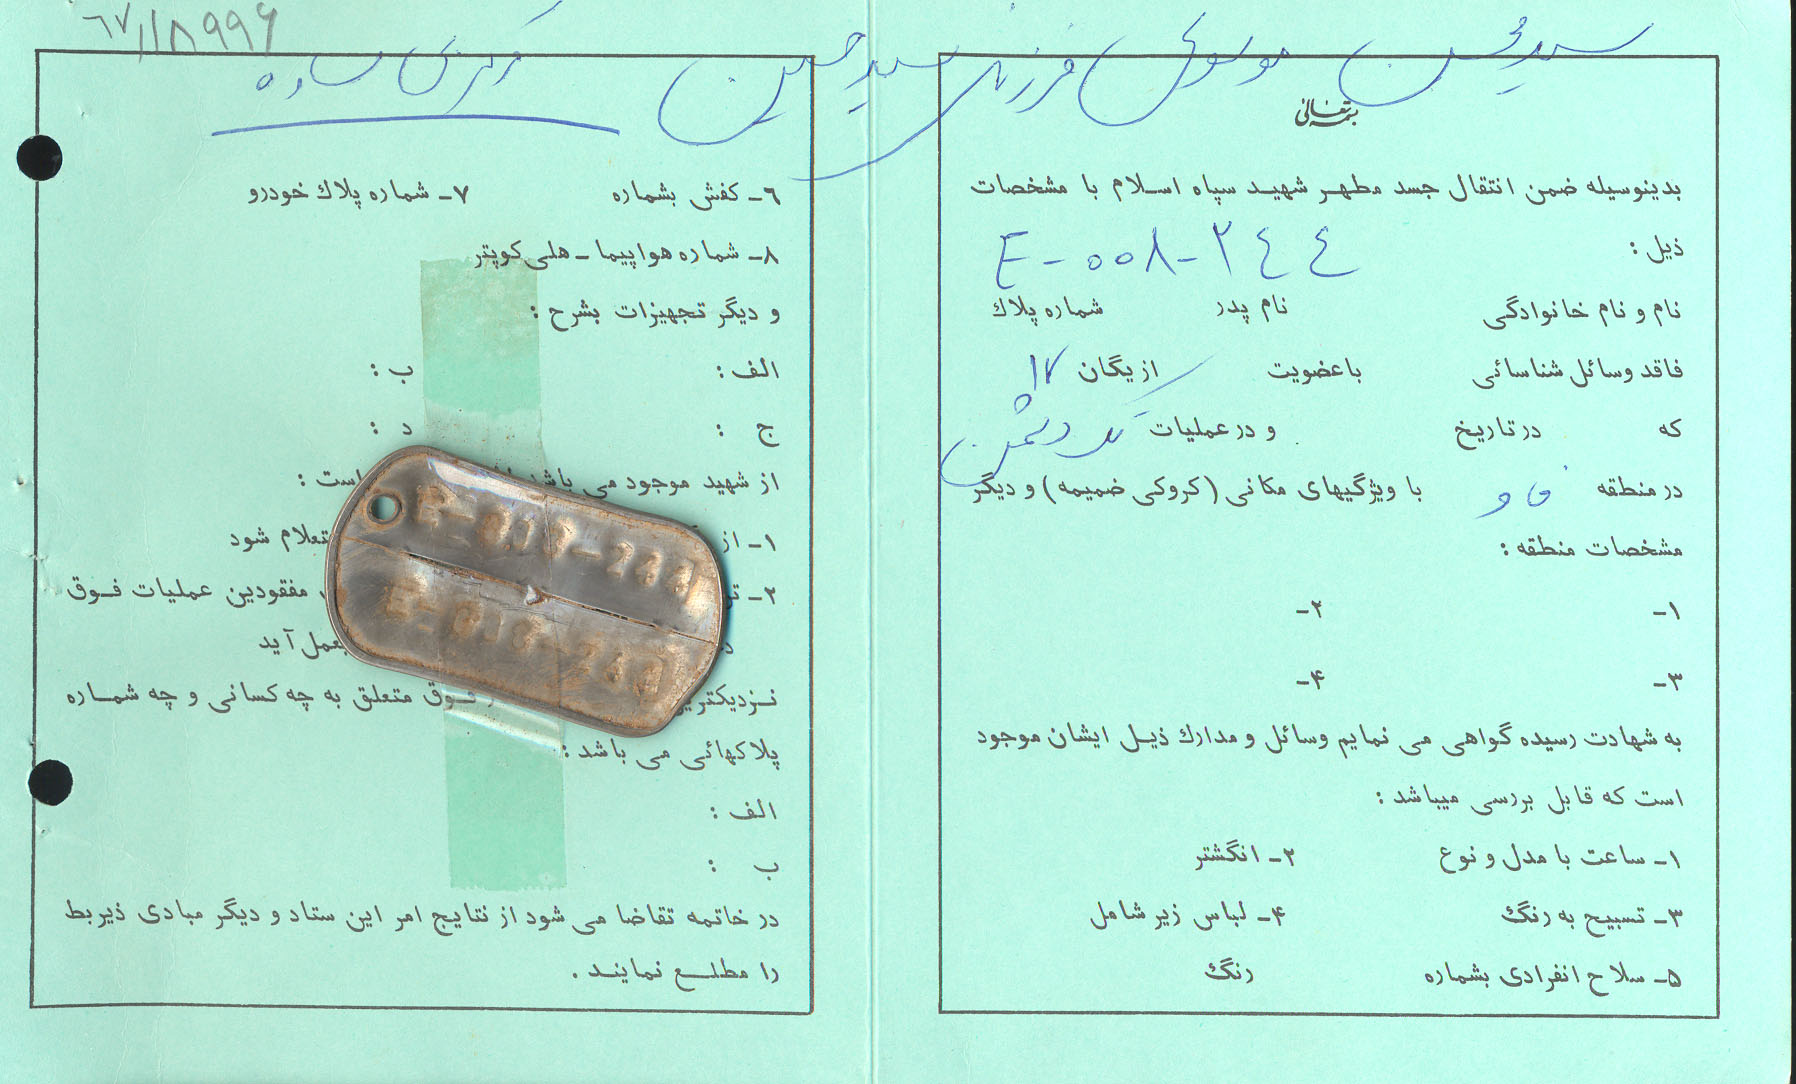 سید محسن موسوی فرزند سید حسین
بسمه تعالی
بدینوسیله ضمن انتقال جسد مطهر شهید سپاه اسلام با مشخصات
ذیل : E-۰۰۸-۲۴۴
نام و نام خانوادگی نام پدر شماره پلاك
فاقد وسائل شناسائی باعضویت از یگان ۱۷
که در تاریخ و در عملیات
در منطقه فاو با ویژگیهای مکانی (کروکی ضمیمه) و دیگر
مشخصات منطقه :
۱- ۲-
۳- ۴-
به شهادت رسیده گواهی می نمایم وسائل و مدارك ذیل ایشان موجود
است که قابل بررسی میباشد :
۱- ساعت با مدل و نوع ۲- انگشتر
۳- تسبیح به رنگ ۴- لباس زیر شامل
۵- سلاح انفرادی بشماره رنگ
۶- کفش بشماره ۷- شماره پلاك خودرو
۸- شماره هواپیما - هلی کوپتر
و دیگر تجهیزات بشرح :
الف : ب :
ج : د :
از شهید موجود می باشد است :
۱- از شود
۲- مفقودین عملیات فوق
آید
فوق متعلق به چه کسانی و چه شماره
پلاکهائی می باشد :
الف :
ب :
در خاتمه تقاضا می شود از نتایج امر این ستاد و دیگر مبادی ذیربط
را مطلع نمایند .